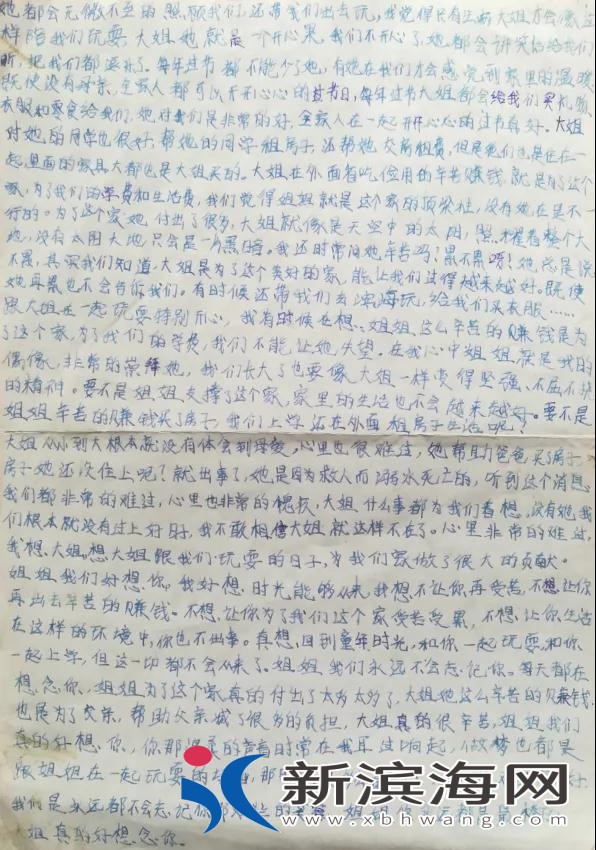 她都会无微不至的照顾我们,还带我们出去玩,我觉得只有生病大姐才会像这
样陪我们玩耍,大姐她就是一个开心果,我们不开心了,她都会讲笑话给我们
听,把我们都逗乐了。每年过节都不能少了她,有她在我们才会感觉到家里的温暖
既使没有母亲,全家人都可以开开心心的过节日,每年过节大姐都会给我们买礼物、
衣服和零食给我们,她对我们是非常的好,全家人在一起开开心心的过节真好。大姐
对她的同学也很好,帮她的同学租房子,还帮她交房租费,但是他们也是住在一
起,里面的家具大都也是大姐买的。大姐在外面省吃俭用的辛苦赚钱,就是为了这个
家,为了我们的学费和生活费,我们觉得姐姐就是这个家的顶梁柱,没有她在是不
行的。为了这个家她付出了很多,大姐就像是天空中的太阳,照耀着整个大
地,没有太阳大地只会是一片黑暗。我还时常问她辛苦吗?累不累呀?她总是说
不累,其实我们知道,大姐是为了这个美好的家,能让我们过得越来越好。既使
她再累也不会告诉我们。有时候还带我们去滨海玩,给我们买衣服……
跟大姐在一起玩耍特别开心,我有时候在想:姐姐这么辛苦的赚钱是为
了这个家,为了我们的学费,我们不能让她失望。在我心中姐姐就是我的
偶像,非常的崇拜她,我们长大了也要像大姐一样变得坚强、不屈不挠
的精神。要不是姐姐支撑了这个家,家里的生活也不会越来越好。要不是
姐姐辛苦的赚钱买了房子,我们上学还在外面租房子生活呢!
大姐从小到大根本就没有体会到母爱,心里也很难过,她帮助爸爸买房子
房子她还没住上呢?就出事了,她是因为救人而溺水死亡的,听到这个消息
我们都非常的难过,心里也非常的愧疚,大姐什么事都为我们着想,没有她我
们根本就没有过上好日子,我不敢相信大姐就这样不在了。心里非常的难过,
我想大姐,想大姐跟我们玩耍的日子,为我们家做了很大的贡献。
姐姐我们好想你。我好想时光能够从来,我想不让你再受苦,不想让你
再出去辛苦的赚钱。不想让你为了我们这个家受苦受累,不想让你生活
在这样的环境中,你也不出事。真想回到童年时光,和你一起玩耍,和你
一起上学,但这一切都不会从来了,姐姐我们永远不会忘记你。每天都在
想念你,姐姐为了这个家真的付出了太多太多了,大姐她这么辛苦的赚钱
也是为了父亲,帮助父亲减了很多的负担,大姐真的很辛苦,姐姐我们
真的好想你,你那温柔的声音时常在我耳边响起,做梦也都是
跟姐姐在一起玩耍的
我们是永远都不会忘记你
大姐真的好想念你。
新滨海网
www.xbhwang.com